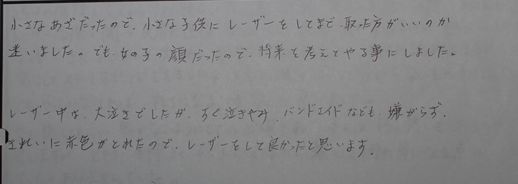 小さなあざだったので、小さな子供にレーザーをしてまで取った方がいいのか
迷いました。でも女の子の顔だったので、将来を考えてやる事にしました。
レーザー中は、大泣きでしたが、すぐ泣きやみ、バンドエイドなども嫌がらず、
きれいに赤色がとれたので、レーザーをして良かったと思います。